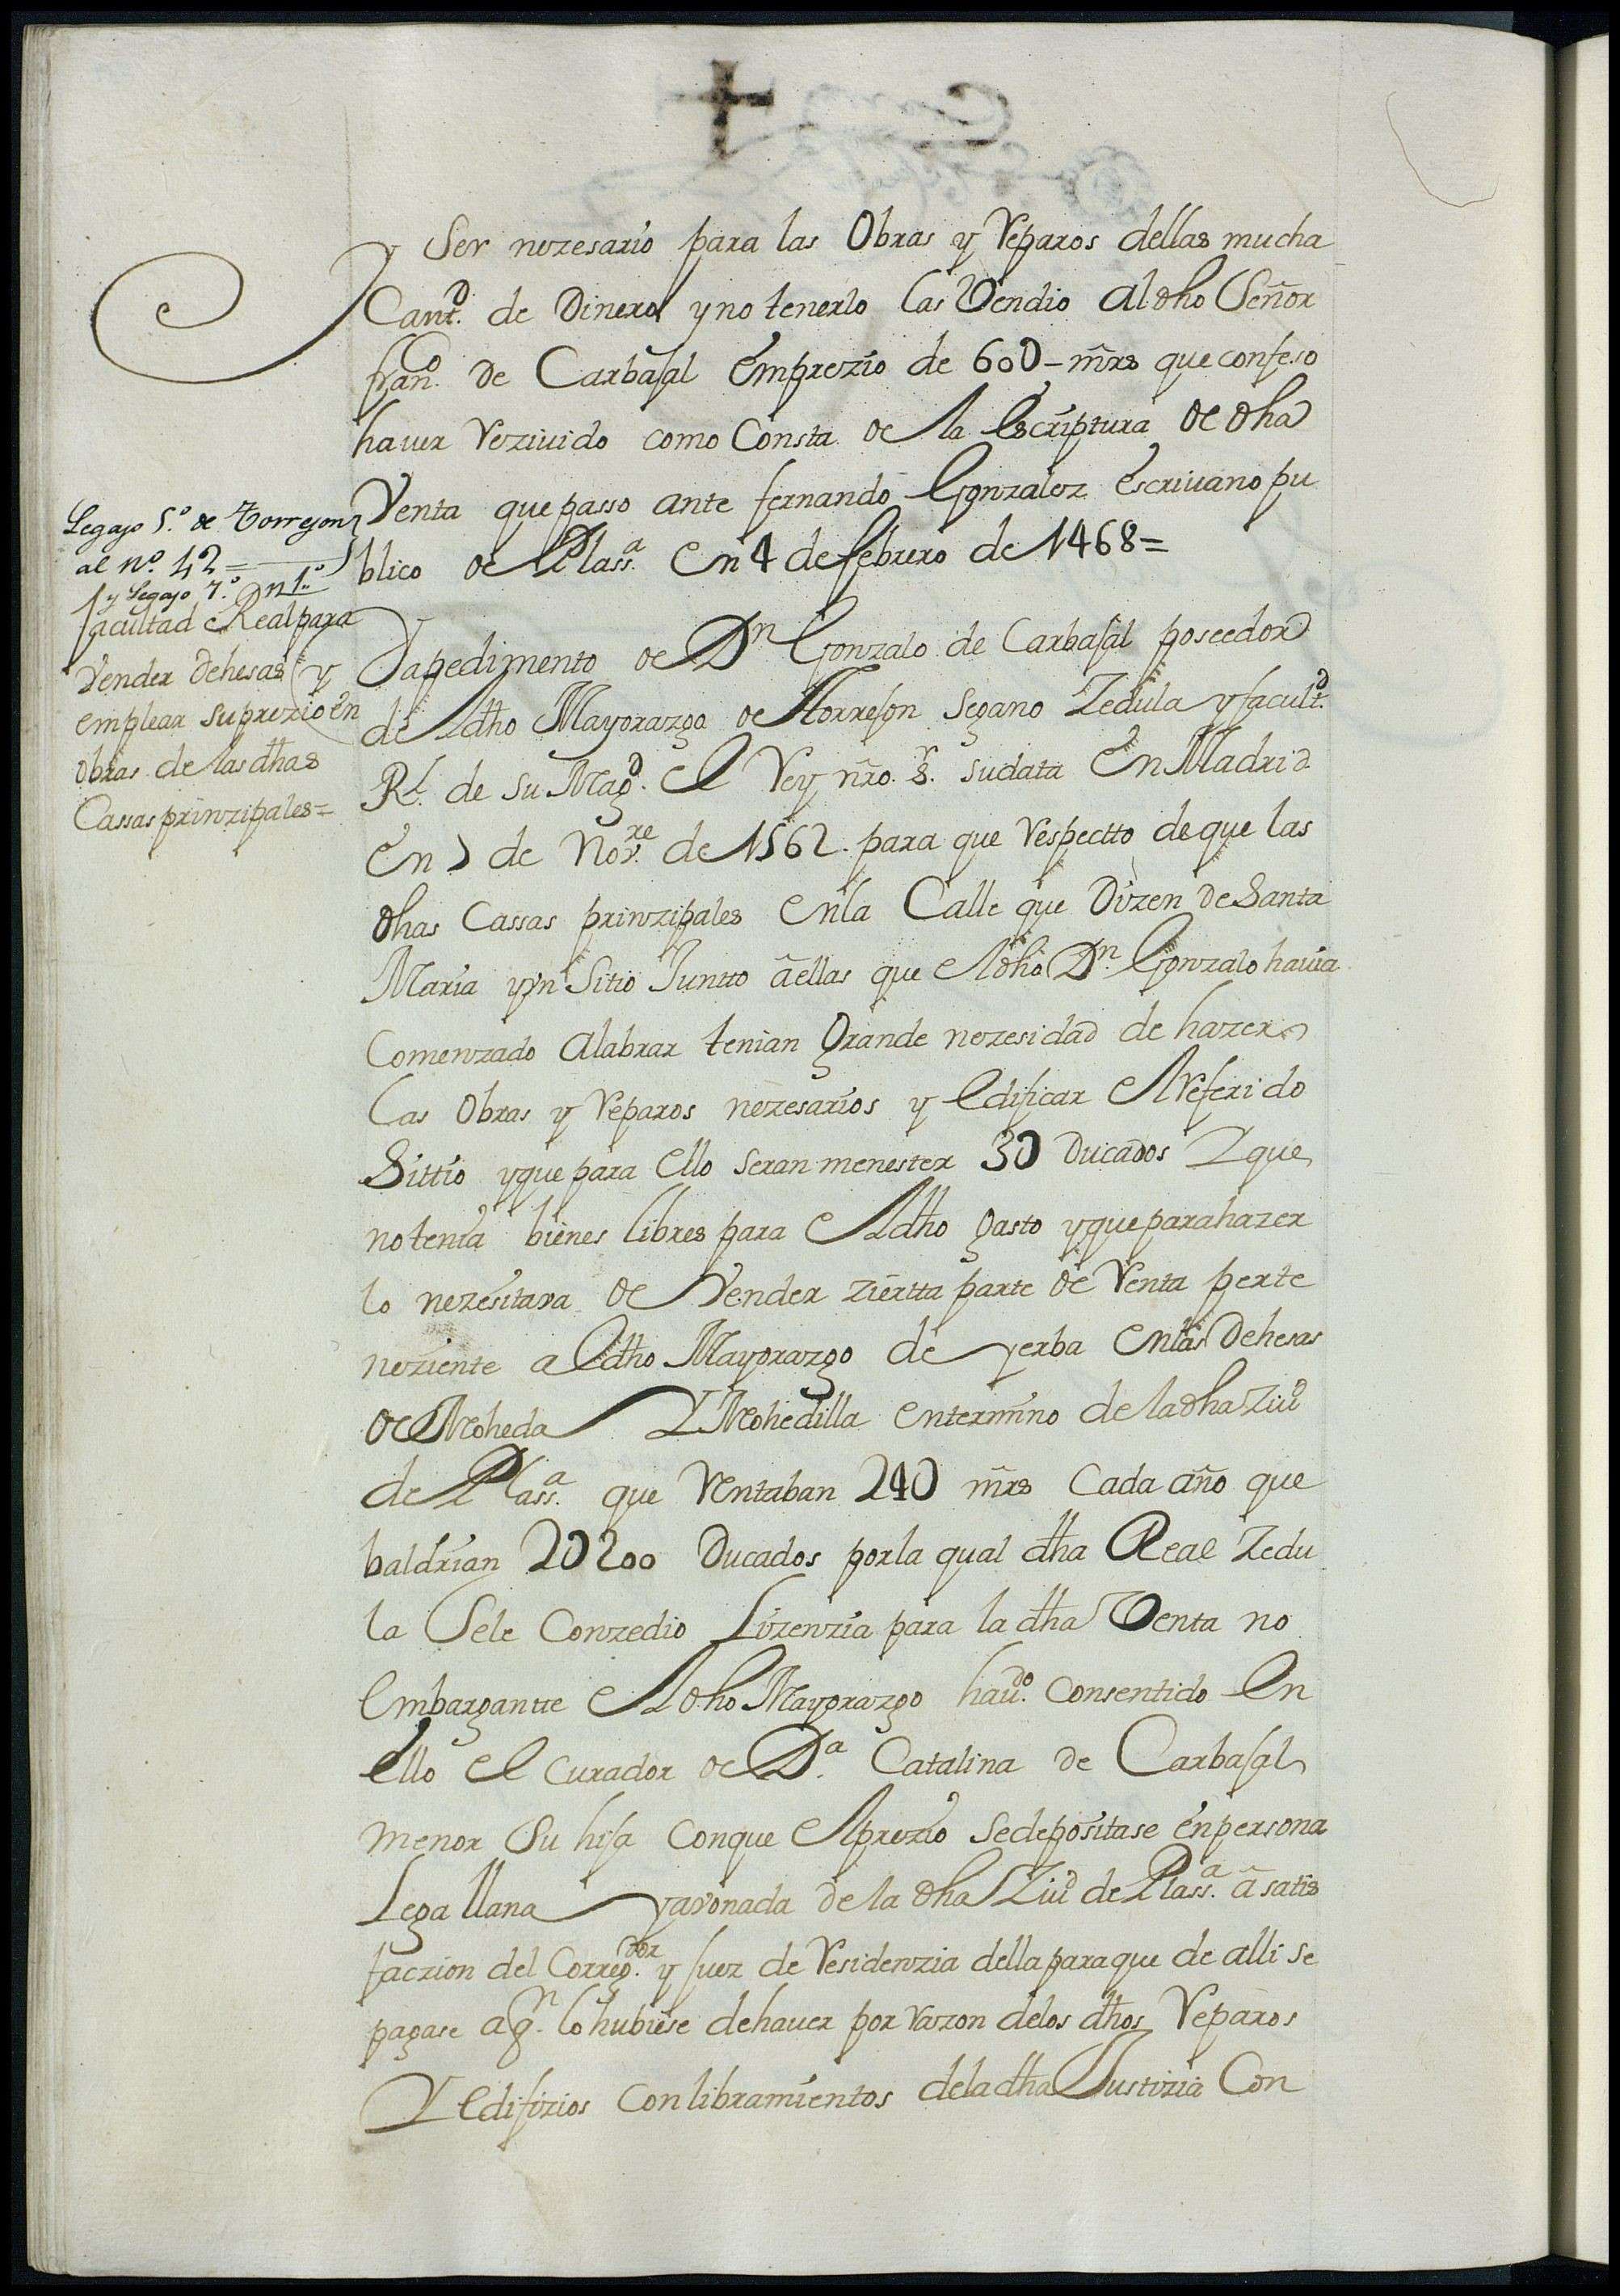 y Ser nezesario para las Obras y Reparos dellas mucha
Cant.d de Dinero y no tenerlo las Vendio al dho Señor
fran.co de Carbajal en prezio de 60D - mrs que confeso
hauer Reziuido como Consta de la Escriptura de dha
Venta que passo ante fernando Gonzalez escriuano pu
blico de Plass.a en 4 de febrero de 1468=
Legajo 5.º de Torrejon
al nº. 42=
y Legajo 7.º n 1.º
facultad Real para
Vender dehesas y
emplear su prezio en
obras de las dhas
Cassas prinzipales=
Y a pedimento de Dn Gonzalo de Carbajal poseedor
del dho Mayorazgo de Torrejon se gano Zedula y facult.d
Rl. de su Magd. el Rey nro. s.r su data en Madrid
en 7 de Nov.re de 1562. para que Respectto de que las
dhas Cassas prinzipales en la Calle que Dizen de Santa
Maria y vn Sitio Juntto a ellas que el dho Dn. Gonzalo hauia
Comenzado a labrar tenian grande nezesidad de hazer
las Obras y Reparos nezesarios y edificar el Referido
Sittio y que para ello seran menester 3D Ducados Y que
no tenia bienes libres para el dho gasto y que para hazer
lo nezesitara de Vender ziertta parte de Renta perte
neziente al dho Mayorazgo de yerba en las Dehesas
de Moheda Y Mohedilla en termino de la dha Ziud
de Plass.a que Rentaban 24D mrs Cada año que
baldrian 2D200 Ducados por la qual dha Real Zedu
la Se le Conzedio Lizenzia para la dha Venta no
embargante el dho Mayorazgo hau.do consentido en
ello el Curador de D.a Catalina de Carbajal
menor Su hija con que el prezio se depositase en persona
Lega llana y avonada de la dha Ziud de Plass.a a satis
faczion del Correg.dor y juez de Residenzia della para que de alli se
pagase a q.n lo hubiese de hauer por razon de los dhos Reparos
Y edifizios con libramientos de la dha Justizia Con